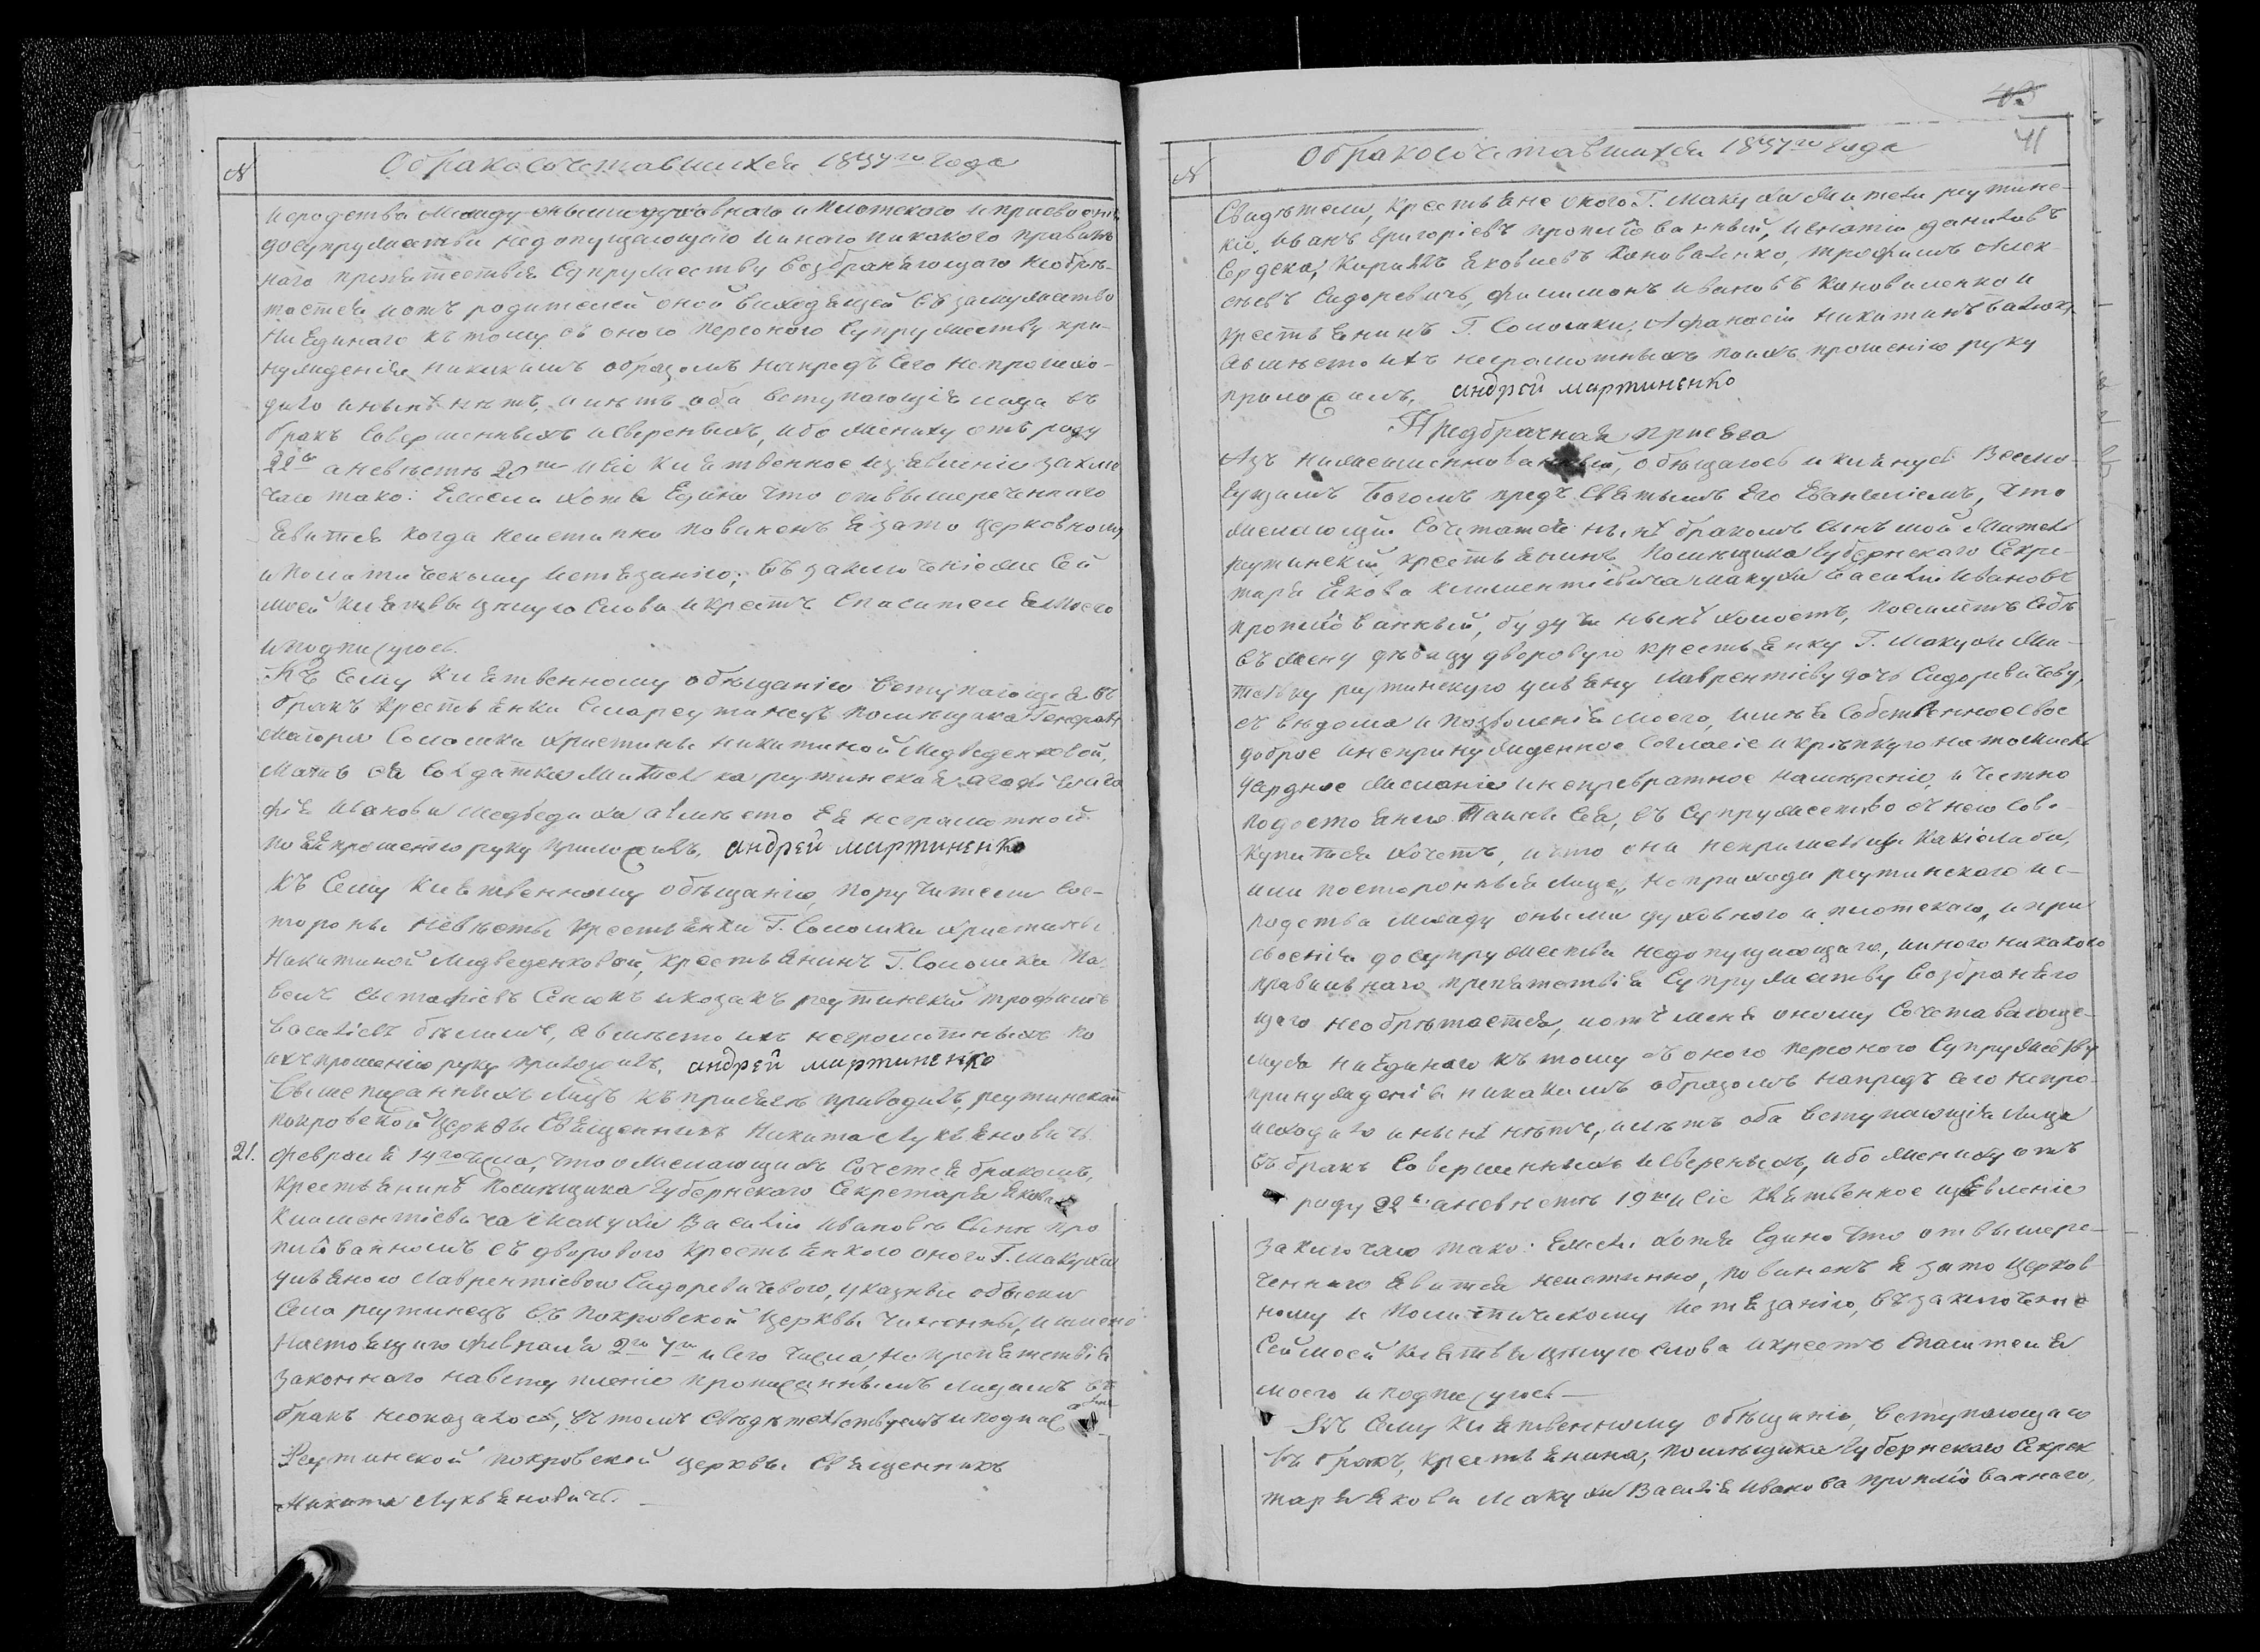 №
О бракосочетавшихся 1837го года
и сродства между оными духовнаго и плотского и присвоенія
до супружества недопущающаго и инаго никакого правиль
наго препятствія супружеству возбраняющаго необрѣ-
тается и отъ родителей оной виходящей въ замужество
ни единаго къ тому съ оного персоного супружеству при-
нужденія никакимъ образомъ напредъ сего непроисхо-
дило и нынѣ нѣтъ, и лѣтъ оба вступающіе лица въ
бракъ совершенныхъ и сверсныхъ, ибо жениху отъ роду
22 а невѣстѣ 20ть и сіе клятвенное изъявленіе заклю
чаю тако: Ежели хотя едино что отвышереченнаго
явится когда неистинно повиненъ я зато церковному
и политическому истязанію; въ заключеніе же сей
моей клятвы цѣлую слова и крестъ Спасителя моего
и подписуюсь.
Къ сему клятвенному обѣщанію вступающія въ
бракъ крестьянки села реутинецъ помѣщика Генералъ
Маіора Соломки Христины Никитиной Медведенковой,
мать ея солдатка жителька реутинская
Иванова Медведиха а вмѣсто ея неграмотной
по ея прошенію руку приложилъ, андрей мартиненко
Къ сему клятвенному обѣщанію, поручители сос-
тороны невѣсты крестьянки Г. Соломки Христины
Никитиной Медведенковой, крестьянинъ Г. Соломки Па-
велъ Евстафіевъ Сенюкъ и козакъ реутинскій трофимъ
василіевъ, а вмѣсто ихъ неграмотныхъ по
ихъ прошенію руку приложилъ, андрей мартиненко
Вышеписанныхъ лицъ къ присягѣ приводилъ, реутинской
покровской церквы Священникъ Никита Лукьяновичъ.
21.
февраля 14го числа, что о желающихъ сочется бракомъ,
крестьянинѣ помѣщика Губернскаго Секретаря Якова
Климентіевича Макухи Василіи Ивановѣ сынѣ про
пиіованномъ съ дворового крестьянкого оного Г. Макухи
ульяною Лаврентіевою Сидоревичевого, указные обыски
села реутинецъ въ Покровской церквы чиненны, и имено
настоящаго февраля 2го 7го и сего числа, но препятствія
законнаго навступленіе прописаннымъ лицамъ въ
бракъ неоказалось, въ томъ свѣдѣтельствуемъ и подпис
Реутинской покровской церквы Священникъ
Никита Лукьяновичъ.
43
41
№
О бракосочетавшихся 1837го года
Свидѣтели, крестьяне оного Г. Макухи жители реутинс-
кіе, Иванъ григоріевъ, Игнатій даниловъ
Сердека, Кирилъ Яковлевъ Коноваленко, трофимъ Алек-
сѣевъ Сидоревичъ, филимонъ Ивановъ Коноваленко и
крестьянинъ Г. Соломки, Афанасій Никитинъ
авмѣсто ихъ неграмотныхъ поихъ прошенію руку
приложилъ, андрей мартиненко
Предбрачная присяга
Азъ нижеименнованный, обѣщаюсь и клянусь Всемо-
гущимъ Богомъ предъ Святымъ Его Евангеліемъ, что
желающій сочетатся нынѣ бракомъ сынъ мой житель
реутинскій крестьянинъ помѣщика Губернскаго Секре-
таря Якова Климентіевича Макухи Василій Ивановъ
пропиіованный, будучи нынѣ холостъ, поемлетъ себѣ
въ жену дѣвицу дворовую крестьянку Г. Макухи жи-
тельку реутинскую ульяну Лаврентіеву дочь Сидоревичеву,
съ вѣдома и позволенія моего, имѣя собственное свое
доброе и непринужденное согласіе и крѣпкую на то и
усердное желаніе и непревратное намѣреніе, и честно
по достоянію Таины сея, въ супружество съ него сово-
купиться хочетъ, и что она непришельца какіелибо,
или посторонныя лица, но прихода реутинского и с-
родства между оными духовного и плотскаго, и при
своенія до супружества недопущающаго, и иного никакого
правильнаго препятствія супружеству возбраняю
щаго необрѣтается, и отъ меня оному сочетавающе-
муся ни единаго къ тому съ оного персоного супружеству
принужденія никакимъ образомъ напредъ сего непро-
исходило и нынѣ нѣтъ, и лѣтъ оба вступающія лица
въ бракъ совершенныхъ и сверсныхъ, ибо жениху отъ
роду 22 а невѣстѣ 19ть и сіе клятвенное изъявленіе
заключаю тако: Ежели хотя едино что отвышере-
ченнаго явится неистинно, повиненъ я зато церков-
ному и политическому истязанію, въ заключеніе
сей моей клятвы цѣлую слова и крестъ Спасителя
моего и подписуюсь —
Къ сему клятвенному обѣщанію, вступающаго
въ бракъ, крестьянина, помѣщика Губернскаго Секрек
таря Якова Макухи Василія Иванова пропиіованнаго,